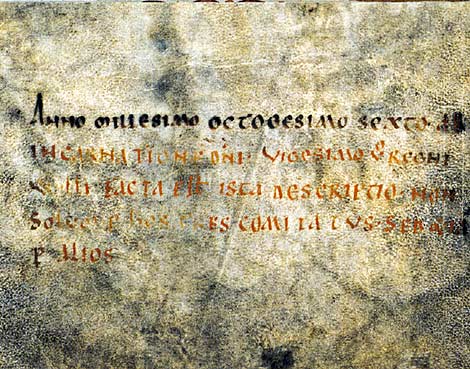 ANNO MILLESIMO OCTOGESIMO SEXTO AB
INCARNATIONE DNI VIGESIMO REGNI
FACTA EST ISTA DESCRIPTIO NON
SOLUM P HOS TRES COMITATUS SED
P ALIOS